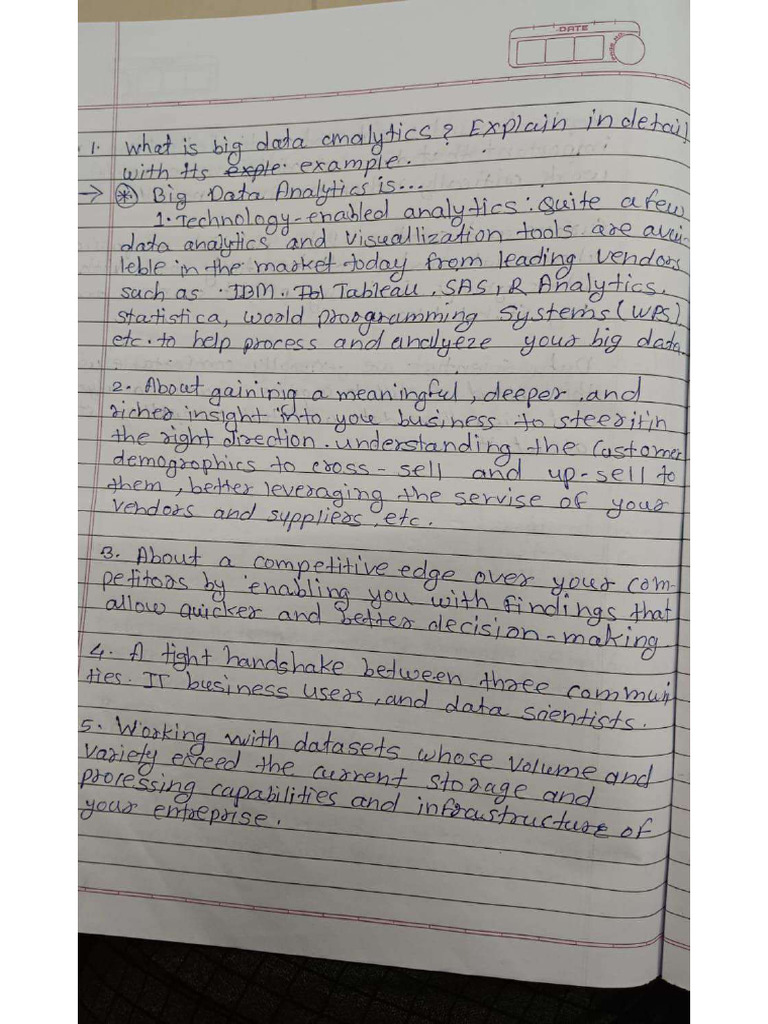 DATE
1. What is big data analytics? Explain in detail
with its exple. example.
→ * Big Data Analytics is...
1. Technology-enabled analytics: Quite a few
data analytics and visuallization tools are avai-
leble in the market today from leading vendors
such as IBM, Tableau, SAS, R Analytics,
statistica, world programming systems (WPS)
etc. to help process and analyeze your big data.
2. About gaining a meaningful, deeper, and
richer insight into you business to steeritin
the right direction. understanding the customer
demogrophics to cross-sell and up-sell to
them, better leveraging the servise of your
vendors and suppliers, etc.
3. About a competitive edge over your com-
petitors by enabling you with findings that
allow quicker and better decision-making
4. A tight handshake between three communi
ties. IT business users, and data scientists.
5. Working with datasets whose volume and
variety exceed the current storage and
processing capabilities and infrastructure of
your entreprise.